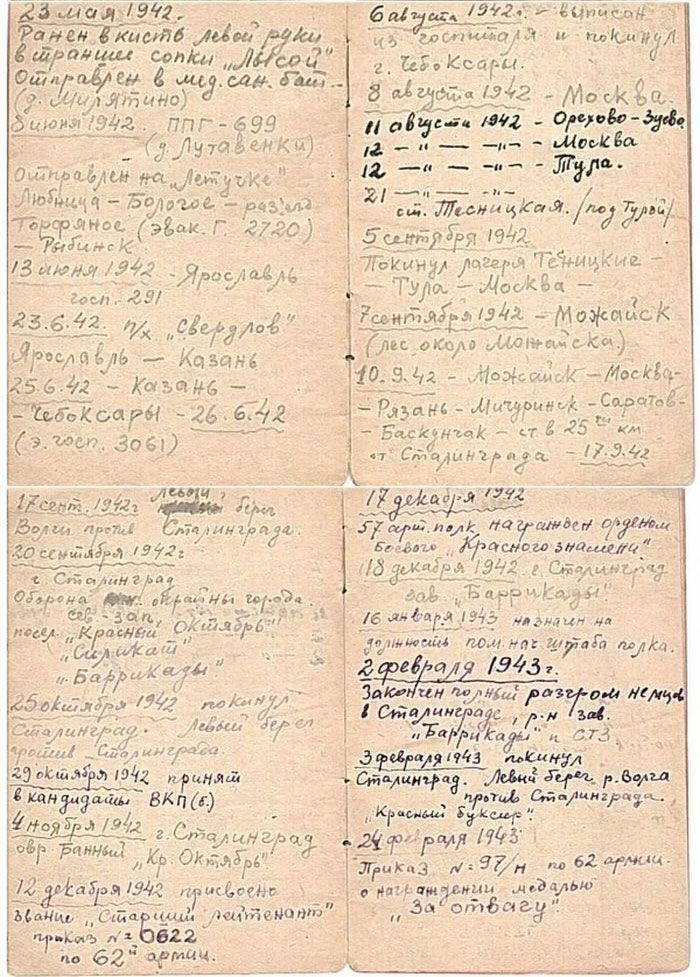 23 мая 1942.
Ранен в кисть левой руки
в траншее сопки „Лысой"
Отправлен в мед. сан. бат.
(д. Мирятино)
8 июня 1942. ППГ - 699
(д. Лутавенки)
Отправлен на „Летучке"
Любница - Бологое - разъезд
Торфяное (эвак. Г. 2720)
- Рыбинск
13 июня 1942 - Ярославль
госп. 291
23.6.42. п/х „Свердлов"
Ярославль - Казань
25.6.42 - Казань -
- Чебоксары - 26.6.42
(э. госп. 3061)
6 августа 1942 г. - выписан
из госпиталя и покинул
г. Чебоксары.
8 августа 1942 - Москва.
11 августа 1942 - Орехово-Зуево
12 —"— —"— - Москва
12 —"— —"— - Тула.
21 —"— —"—
ст. Тесницкая. /под Тулой/
5 сентября 1942
Покинул лагеря Тесницкие -
- Тула - Москва -
7 сентября 1942 - Можайск
(лес около Можайска)
10.9.42 - Можайск - Москва-
- Рязань - Мичуринск - Саратов-
- Баскунчак - ст. в 25 ти км
от Сталинграда - 17.9.42
17 сент. 1942 г левый берег
Волги против Сталинграда.
20 сентября 1942 г
г. Сталинград
Оборона окраины города.
сев - зап.
посел. „Красный Октябрь"
„Силикат"
„Баррикады"
25 октября 1942 покинул
Сталинград. Левый берег
против Сталинграда.
29 октября 1942 принят
в кандидаты ВКП(б.)
4 ноября 1942 г. Сталинград
овр. Банный „Кр. Октябрь"
12 декабря 1942 присвоено
звание „Старший лейтенант"
приказ №= 0622
по 62й армии.
17 декабря 1942
57 арт. полк награжден орденом
Боевого „Красного знамени"
18 декабря 1942. г. Сталинград
зав. „Баррикады"
16 января 1943 назначен на
должность пом. нач штаба полка.
2 февраля 1943 г.
Закончен полный разгром немцев
в Сталинграде, р-н зав.
„Баррикады" и СТЗ
3 февраля 1943 покинул
Сталинград. Левый берег р. Волга
против Сталинграда.
„Красный буксир".
24 февраля 1943
Приказ №= 97/н по 62 армии.
о награждении медалью
„За отвагу".